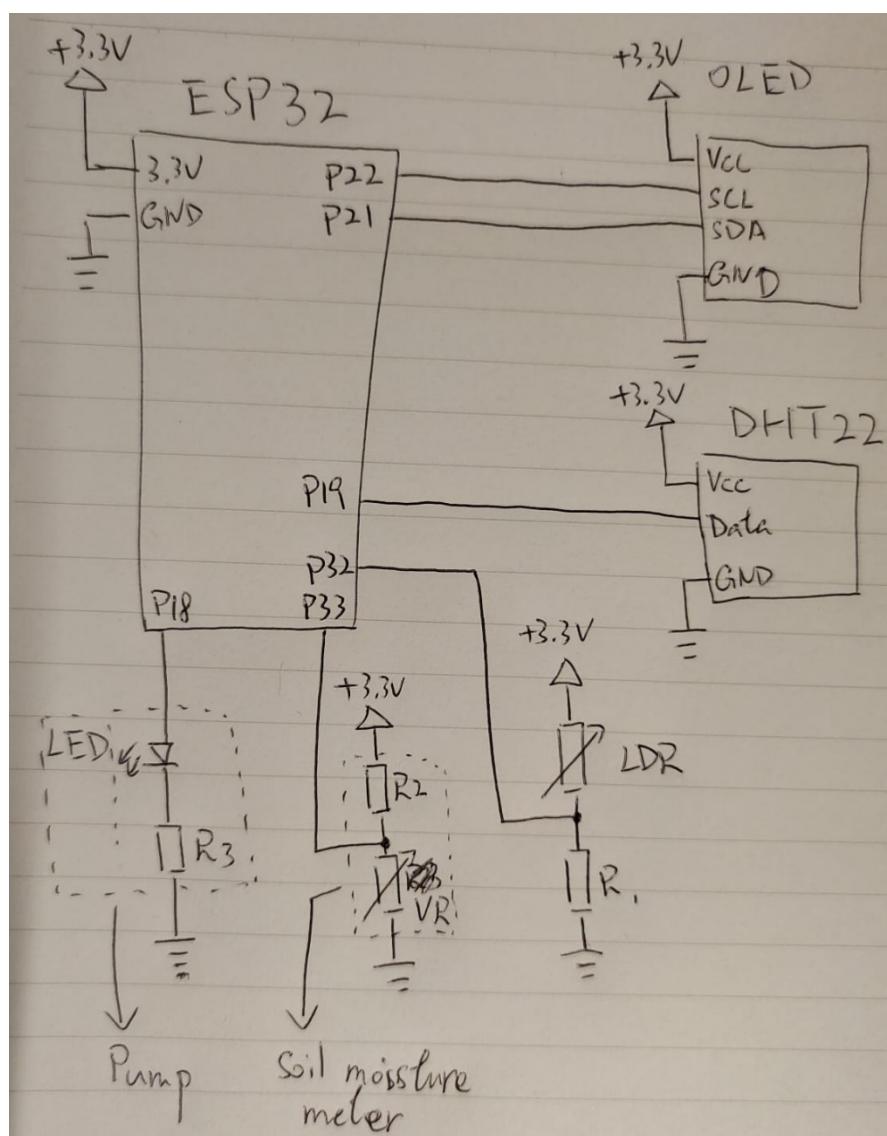 +3.3V
ESP32
3.3V
GND
P22
P21
P19
P32
P18
P33
+3.3V
OLED
VCC
SCL
SDA
GND
+3.3V
DHT22
Vcc
Data
GND
LED
R3
+3.3V
R2
VR
+3.3V
LDR
R1
Pump
Soil moisture
meter